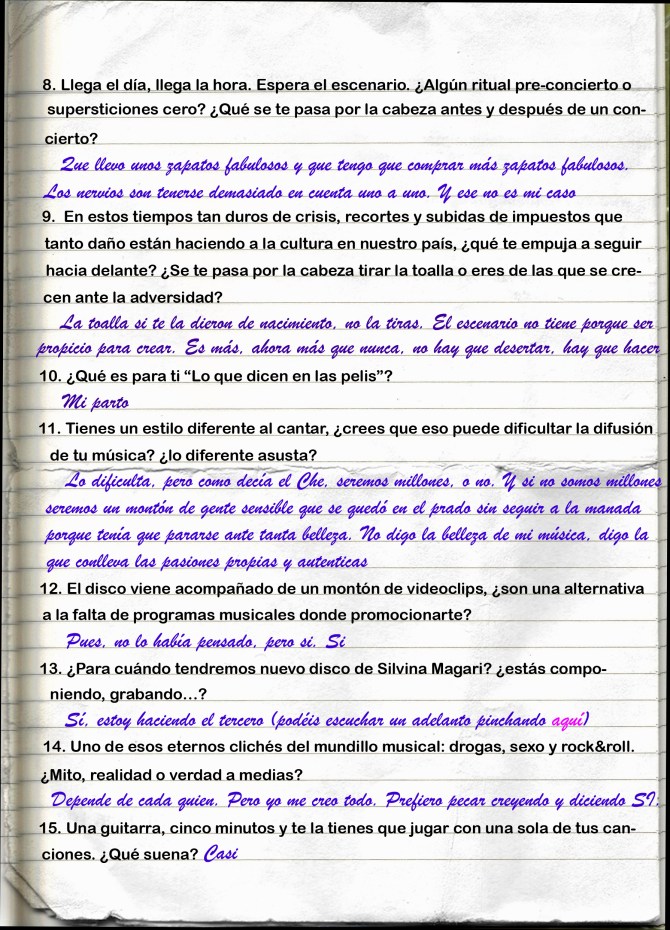 8. Llega el día, llega la hora. Espera el escenario. ¿Algún ritual pre-concierto o
supersticiones cero? ¿Qué se te pasa por la cabeza antes y después de un con-
cierto?
Que llevo unos zapatos fabulosos y que tengo que comprar más zapatos fabulosos.
Los nervios son tenerse demasiado en cuenta uno a uno. Y ese no es mi caso
9. En estos tiempos tan duros de crisis, recortes y subidas de impuestos que
tanto daño están haciendo a la cultura en nuestro país, ¿qué te empuja a seguir
hacia delante? ¿Se te pasa por la cabeza tirar la toalla o eres de las que se cre-
cen ante la adversidad?
La toalla si te la dieron de nacimiento, no la tiras. El escenario no tiene porque ser
propicio para crear. Es más, ahora más que nunca, no hay que desertar, hay que hacer
10. ¿Qué es para ti “Lo que dicen en las pelis”?
Mi parto
11. Tienes un estilo diferente al cantar, ¿crees que eso puede dificultar la difusión
de tu música? ¿lo diferente asusta?
Lo dificulta, pero como decía el Che, seremos millones, o no. Y si no somos millones
seremos un montón de gente sensible que se quedó en el prado sin seguir a la manada
porque tenía que pararse ante tanta belleza. No digo la belleza de mi música, digo la
que conlleva las pasiones propias y autenticas
12. El disco viene acompañado de un montón de videoclips, ¿son una alternativa
a la falta de programas musicales donde promocionarte?
Pues, no lo había pensado, pero si. Si
13. ¿Para cuándo tendremos nuevo disco de Silvina Magari? ¿estás compo-
niendo, grabando...?
Sí, estoy haciendo el tercero (podéis escuchar un adelanto pinchando aquí)
14. Uno de esos eternos clichés del mundillo musical: drogas, sexo y rock&roll.
¿Mito, realidad o verdad a medias?
Depende de cada quien. Pero yo me creo todo. Prefiero pecar creyendo y diciendo SI.
15. Una guitarra, cinco minutos y te la tienes que jugar con una sola de tus can-
ciones. ¿Qué suena? Casi